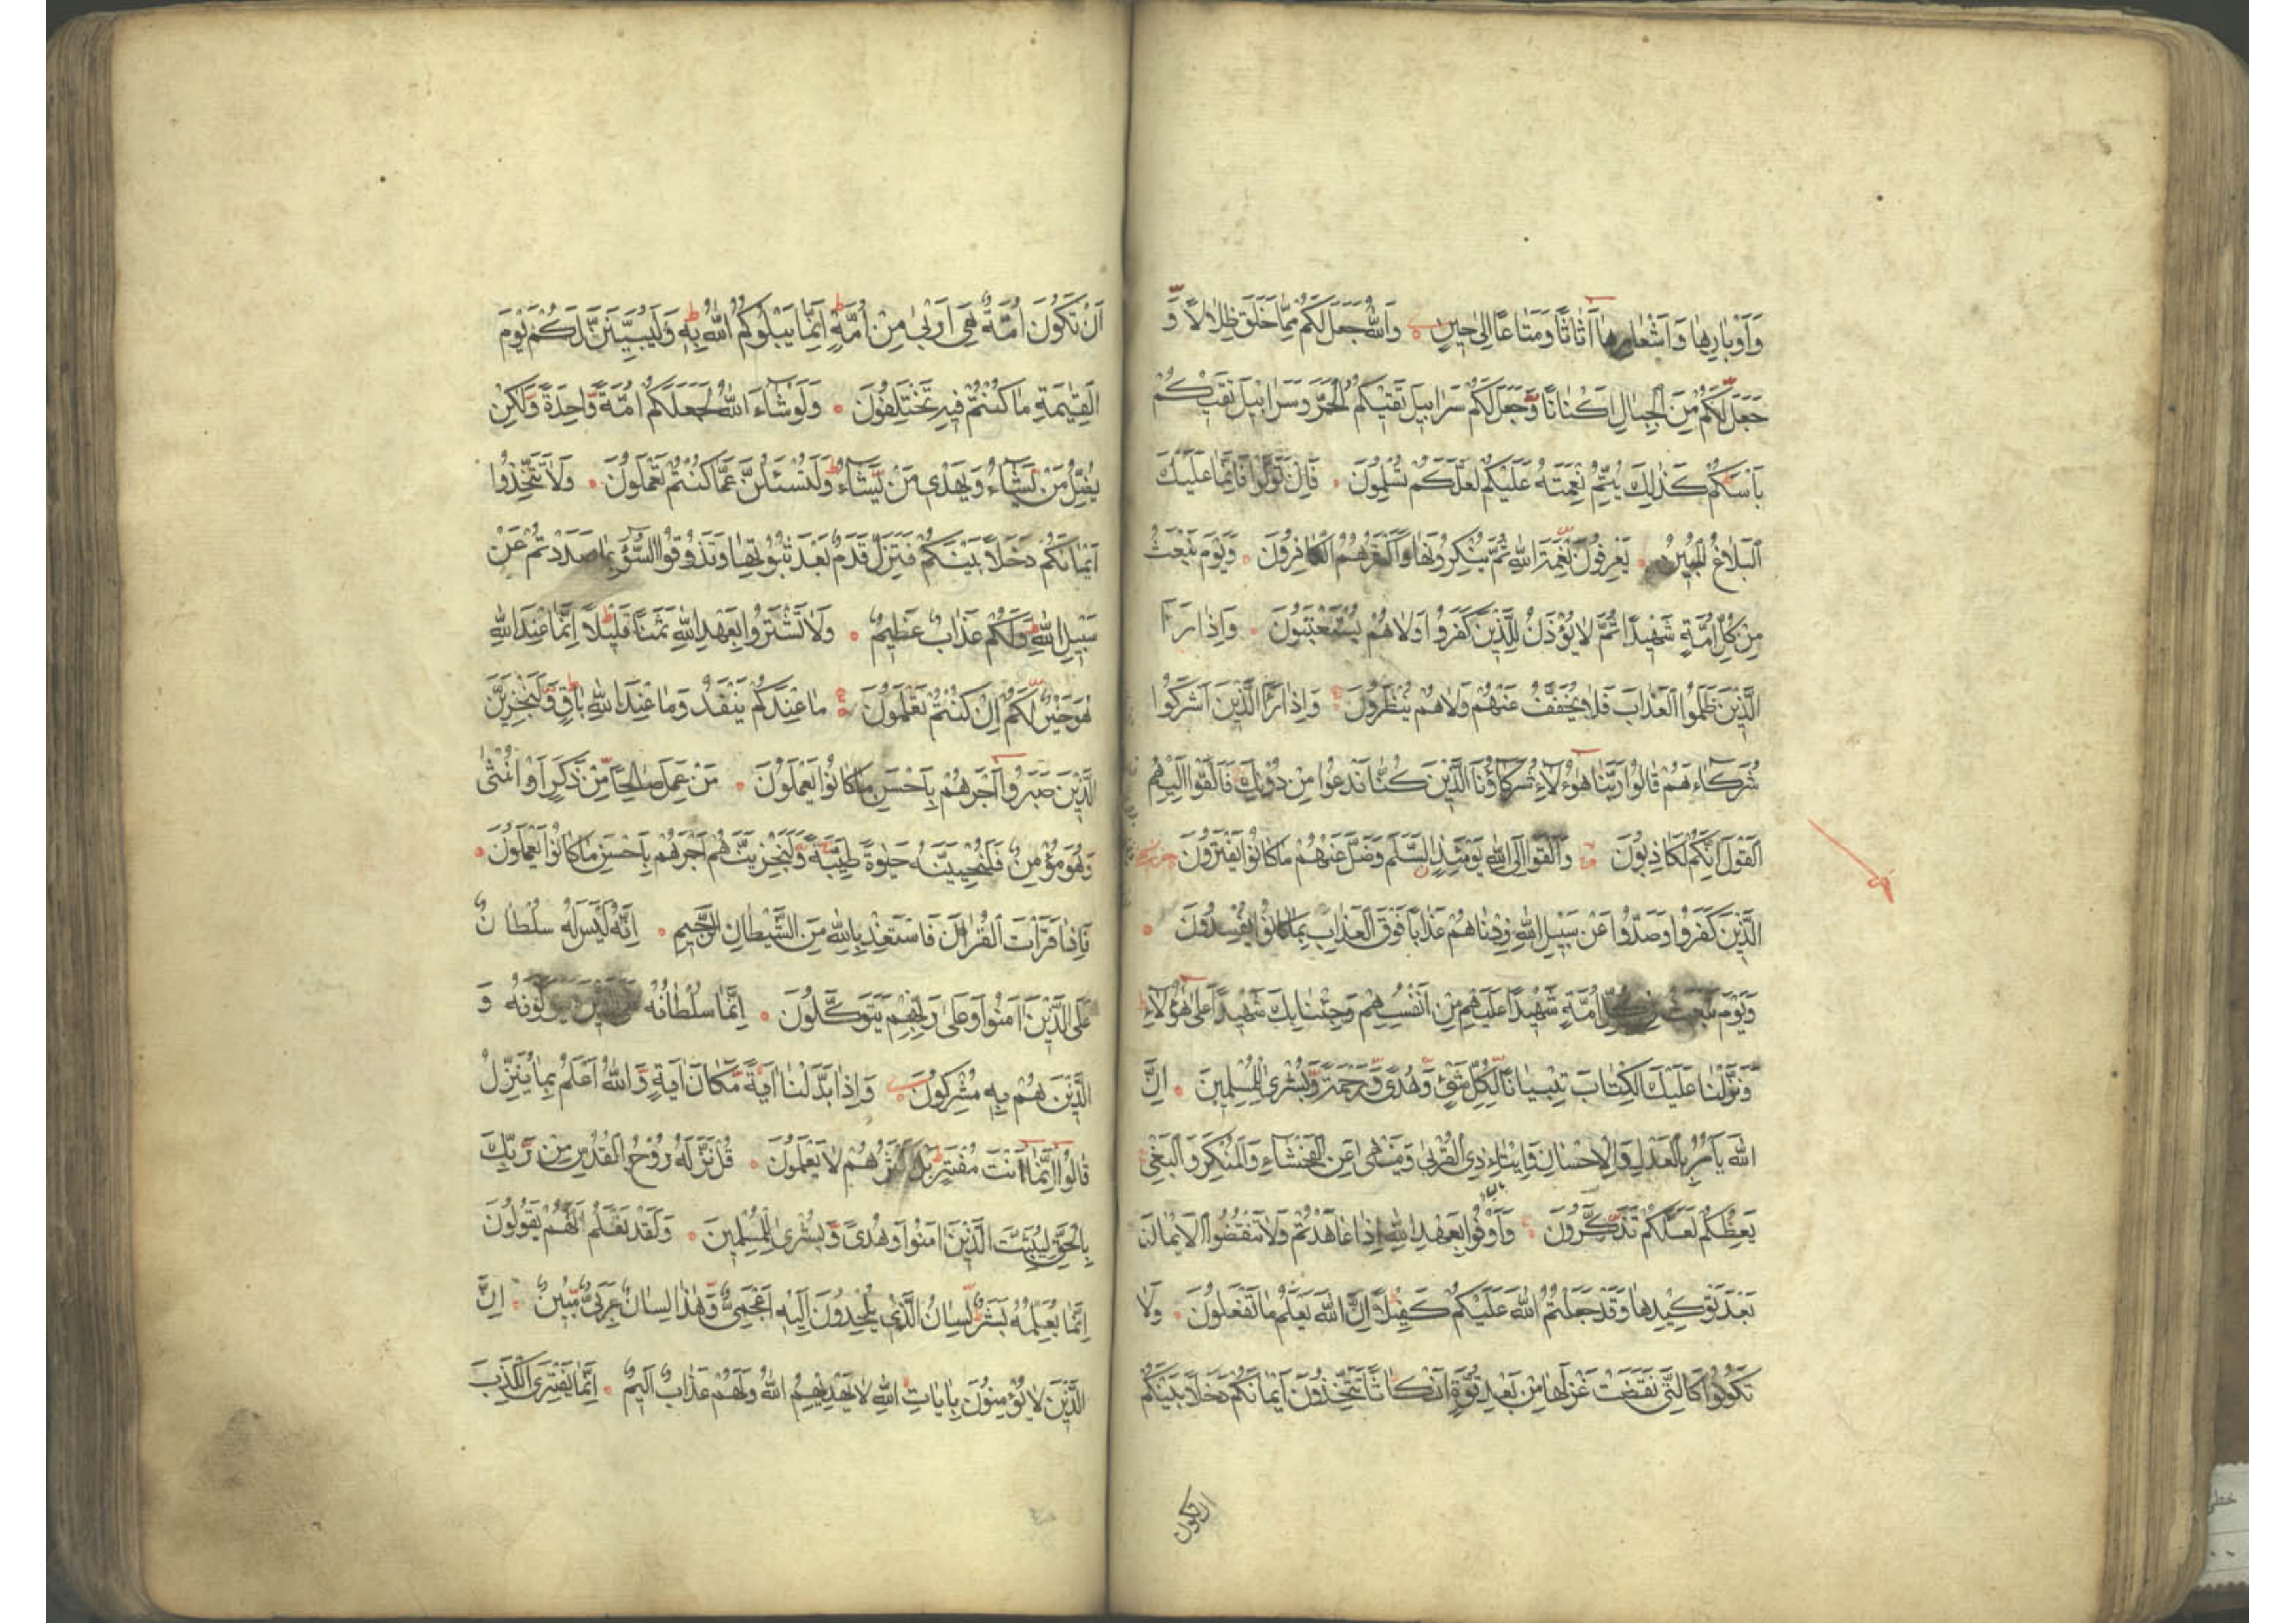 وَاَوْبَارِهَا وَاَشْعَارِهَا اَثَاثًا وَمَتَاعًا اِلٰى حِينٍ وَاللّٰهُ جَعَلَ لَكُمْ مِمَّا خَلَقَ ظِلَالًا وَّ
جَعَلَ لَكُمْ مِنَ الْجِبَالِ اَكْنَانًا وَّجَعَلَ لَكُمْ سَرَابِيلَ تَقِيكُمُ الْحَرَّ وَسَرَابِيلَ تَقِيكُمْ
بَاْسَكُمْ كَذٰلِكَ يُتِمُّ نِعْمَتَهُ عَلَيْكُمْ لَعَلَّكُمْ تُسْلِمُونَ فَاِنْ تَوَلَّوْا فَاِنَّمَا عَلَيْكَ
الْبَلَاغُ الْمُبِينُ يَعْرِفُونَ نِعْمَةَ اللّٰهِ ثُمَّ يُنْكِرُونَهَا وَاَكْثَرُهُمُ الْكَافِرُونَ وَيَوْمَ نَبْعَثُ
مِنْ كُلِّ اُمَّةٍ شَهِيْدًا ثُمَّ لَا يُؤْذَنُ لِلَّذِيْنَ كَفَرُوا وَلَا هُمْ يُسْتَعْتَبُونَ وَاِذَا رَاَ
الَّذِيْنَ ظَلَمُوا الْعَذَابَ فَلَا يُخَفَّفُ عَنْهُمْ وَلَا هُمْ يُنْظَرُونَ وَاِذَا رَاَ الَّذِيْنَ اَشْرَكُوا
شُرَكَاءَهُمْ قَالُوا رَبَّنَا هٰؤُلَاءِ شُرَكَاؤُنَا الَّذِيْنَ كُنَّا نَدْعُوا مِنْ دُوْنِكَ فَاَلْقَوْا اِلَيْهِمُ
الْقَوْلَ اِنَّكُمْ لَكَاذِبُوْنَ وَاَلْقَوْا اِلَى اللّٰهِ يَوْمَئِذٍ السَّلَمَ وَضَلَّ عَنْهُمْ مَا كَانُوْا يَفْتَرُوْنَ
الَّذِيْنَ كَفَرُوا وَصَدُّوا عَنْ سَبِيْلِ اللّٰهِ زِدْنَاهُمْ عَذَابًا فَوْقَ الْعَذَابِ بِمَا كَانُوْا يُفْسِدُوْنَ
وَيَوْمَ نَبْعَثُ فِي كُلِّ اُمَّةٍ شَهِيْدًا عَلَيْهِمْ مِنْ اَنْفُسِهِمْ وَجِئْنَا بِكَ شَهِيْدًا عَلٰى هٰؤُلَاءِ
وَنَزَّلْنَا عَلَيْكَ الْكِتَابَ تِبْيَانًا لِّكُلِّ شَيْءٍ وَّهُدًى وَّرَحْمَةً وَّبُشْرٰى لِلْمُسْلِمِيْنَ اِنَّ
اللّٰهَ يَاْمُرُ بِالْعَدْلِ وَالْاِحْسَانِ وَاِيْتَاءِ ذِى الْقُرْبٰى وَيَنْهٰى عَنِ الْفَحْشَاءِ وَالْمُنْكَرِ وَالْبَغْيِ
يَعِظُكُمْ لَعَلَّكُمْ تَذَكَّرُوْنَ وَاَوْفُوْا بِعَهْدِ اللّٰهِ اِذَا عَاهَدْتُمْ وَلَا تَنْقُضُوا الْاَيْمَانَ
بَعْدَ تَوْكِيْدِهَا وَقَدْ جَعَلْتُمُ اللّٰهَ عَلَيْكُمْ كَفِيْلًا اِنَّ اللّٰهَ يَعْلَمُ مَا تَفْعَلُوْنَ وَلَا
تَكُوْنُوْا كَالَّتِى نَقَضَتْ غَزْلَهَا مِنْ بَعْدِ قُوَّةٍ اَنْكَاثًا تَتَّخِذُوْنَ اَيْمَانَكُمْ دَخَلًا بَيْنَكُمْ
ان تكون
اَنْ تَكُوْنَ اُمَّةٌ هِيَ اَرْبٰى مِنْ اُمَّةٍ اِنَّمَا يَبْلُوْكُمُ اللّٰهُ بِهٖ وَلَيُبَيِّنَنَّ لَكُمْ يَوْمَ
الْقِيٰمَةِ مَا كُنْتُمْ فِيْهِ تَخْتَلِفُوْنَ وَلَوْ شَاءَ اللّٰهُ لَجَعَلَكُمْ اُمَّةً وَّاحِدَةً وَّلٰكِنْ
يُضِلُّ مَنْ يَّشَاءُ وَيَهْدِى مَنْ يَّشَاءُ وَلَتُسْئَلُنَّ عَمَّا كُنْتُمْ تَعْمَلُوْنَ وَلَا تَتَّخِذُوْا
اَيْمَانَكُمْ دَخَلًا بَيْنَكُمْ فَتَزِلَّ قَدَمٌ بَعْدَ ثُبُوْتِهَا وَتَذُوْقُوا السُّوْءَ بِمَا صَدَدْتُمْ عَنْ
سَبِيْلِ اللّٰهِ وَلَكُمْ عَذَابٌ عَظِيْمٌ وَلَا تَشْتَرُوْا بِعَهْدِ اللّٰهِ ثَمَنًا قَلِيْلًا اِنَّمَا عِنْدَ اللّٰهِ
هُوَ خَيْرٌ لَّكُمْ اِنْ كُنْتُمْ تَعْلَمُوْنَ مَا عِنْدَكُمْ يَنْفَدُ وَمَا عِنْدَ اللّٰهِ بَاقٍ وَّلَنَجْزِيَنَّ
الَّذِيْنَ صَبَرُوْا اَجْرَهُمْ بِاَحْسَنِ مَا كَانُوْا يَعْمَلُوْنَ مَنْ عَمِلَ صَالِحًا مِّنْ ذَكَرٍ اَوْ اُنْثٰى
وَهُوَ مُؤْمِنٌ فَلَنُحْيِيَنَّهُ حَيٰوةً طَيِّبَةً وَّلَنَجْزِيَنَّهُمْ اَجْرَهُمْ بِاَحْسَنِ مَا كَانُوْا يَعْمَلُوْنَ
فَاِذَا قَرَأْتَ الْقُرْاٰنَ فَاسْتَعِذْ بِاللّٰهِ مِنَ الشَّيْطَانِ الرَّجِيْمِ اِنَّهُ لَيْسَ لَهُ سُلْطَانٌ
عَلَى الَّذِيْنَ اٰمَنُوْا وَعَلٰى رَبِّهِمْ يَتَوَكَّلُوْنَ اِنَّمَا سُلْطَانُهُ عَلَى الَّذِيْنَ يَتَوَلَّوْنَهُ وَ
الَّذِيْنَ هُمْ بِهٖ مُشْرِكُوْنَ وَاِذَا بَدَّلْنَا اٰيَةً مَّكَانَ اٰيَةٍ وَّاللّٰهُ اَعْلَمُ بِمَا يُنَزِّلُ
قَالُوْا اِنَّمَا اَنْتَ مُفْتَرٍ بَلْ اَكْثَرُهُمْ لَا يَعْلَمُوْنَ قُلْ نَزَّلَهُ رُوْحُ الْقُدُسِ مِنْ رَّبِّكَ
بِالْحَقِّ لِيُثَبِّتَ الَّذِيْنَ اٰمَنُوْا وَهُدًى وَّبُشْرٰى لِلْمُسْلِمِيْنَ وَلَقَدْ نَعْلَمُ اَنَّهُمْ يَقُوْلُوْنَ
اِنَّمَا يُعَلِّمُهُ بَشَرٌ لِّسَانُ الَّذِى يُلْحِدُوْنَ اِلَيْهِ اَعْجَمِيٌّ وَّهٰذَا لِسَانٌ عَرَبِيٌّ مُّبِيْنٌ اِنَّ
الَّذِيْنَ لَا يُؤْمِنُوْنَ بِاٰيَاتِ اللّٰهِ لَا يَهْدِيْهِمُ اللّٰهُ وَلَهُمْ عَذَابٌ اَلِيْمٌ اِنَّمَا يَفْتَرِى الْكَذِبَ